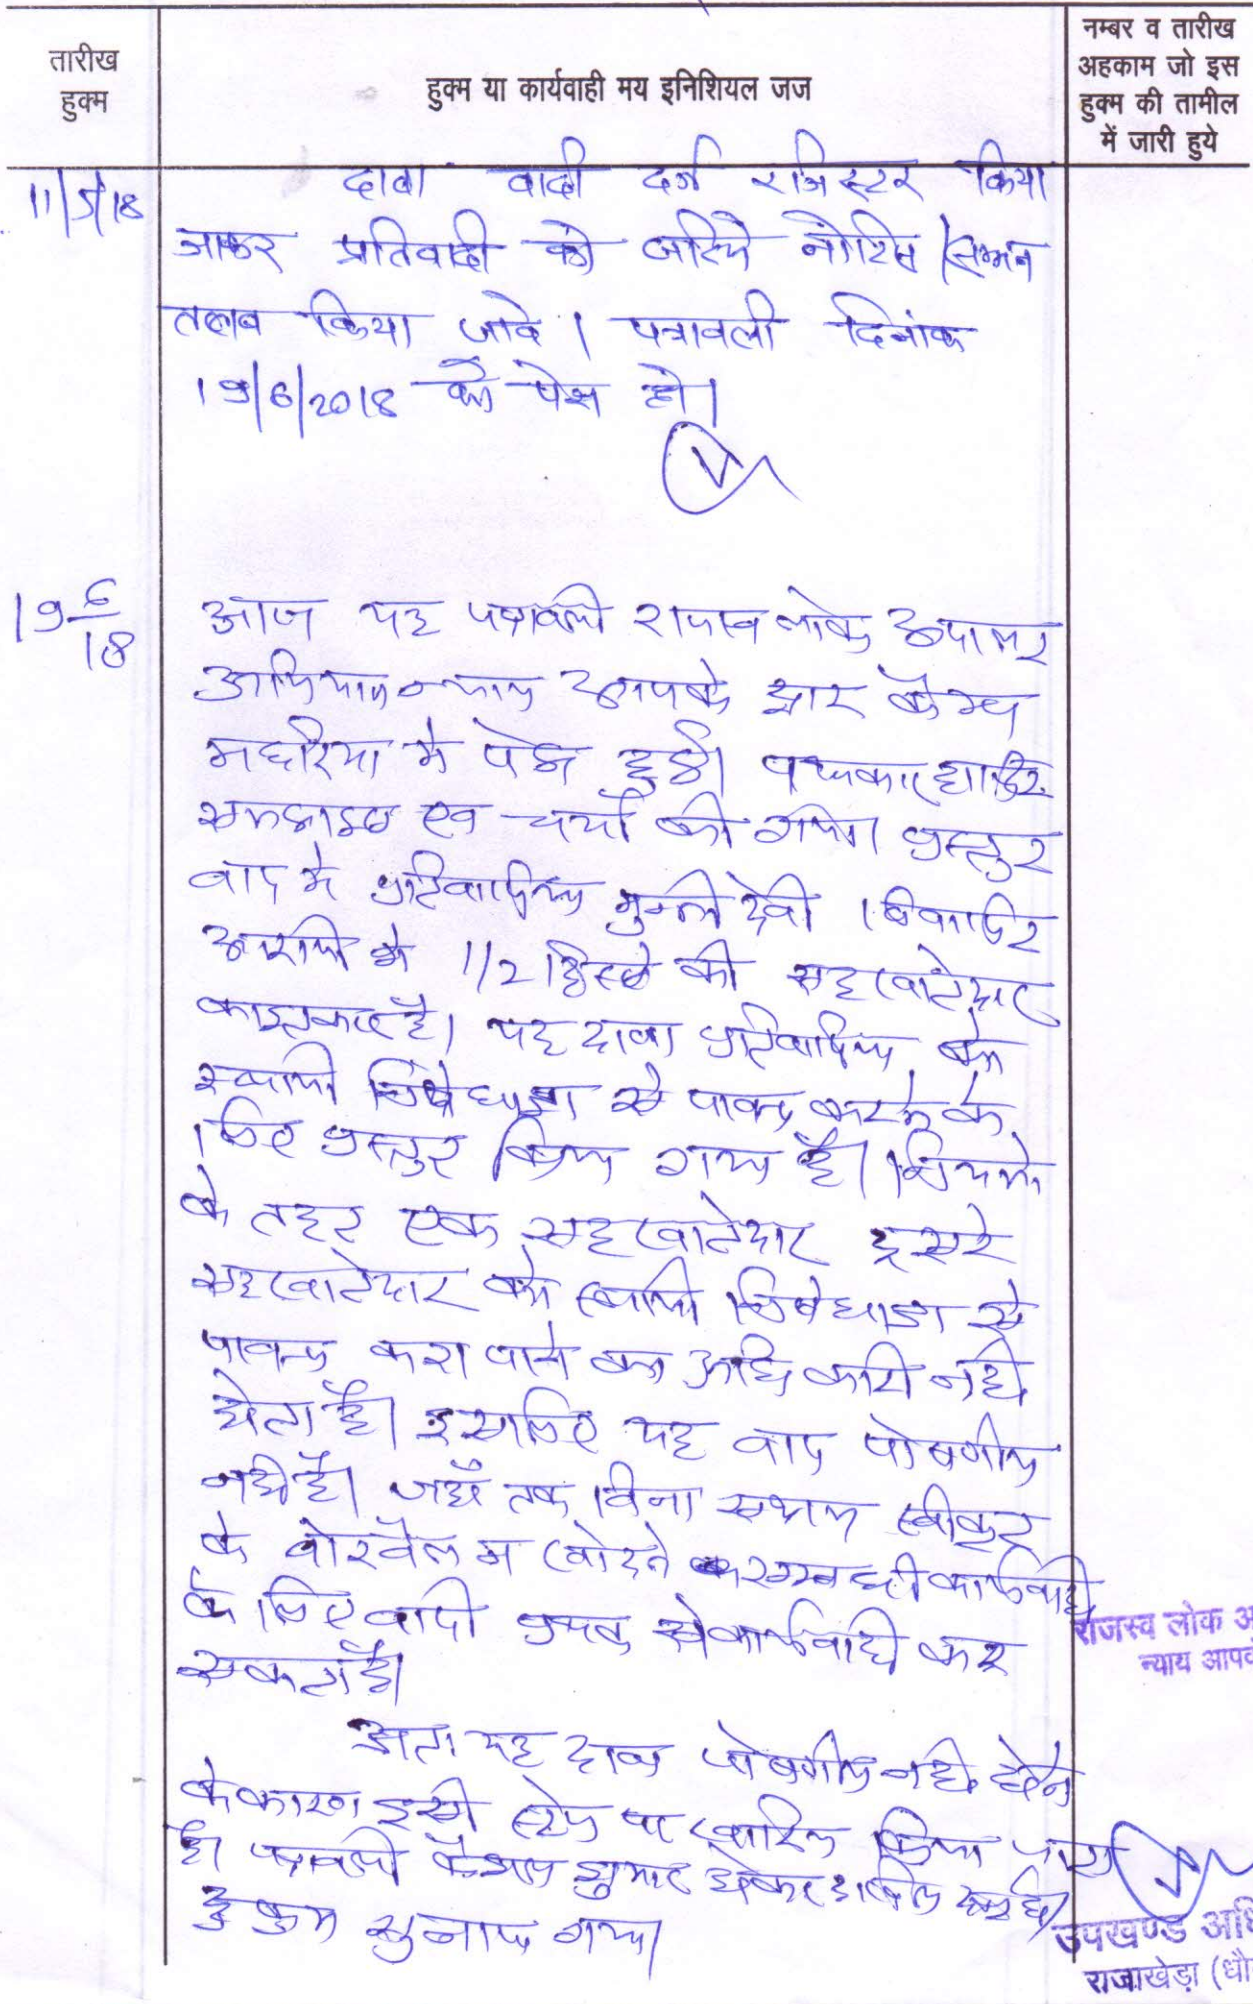 तारीख
हुक्म
हुक्म या कार्यवाही मय इनिशियल जज
नम्बर व तारीख
अहकाम जो इस
हुक्म की तामील
में जारी हुये
11/5/18
दावा वादी दर्ज रजिस्टर किया
जाकर प्रतिवादी को जरिये नोटिस/सम्मन
तलब किया जावे। पत्रावली दिनांक
19/6/2018 को पेश हो।
19 6/18
आज यह पत्रावली राजस्व लोक अदालत
अभियान न्याय आपके द्वार कैम्प
में पेश हुई। पक्षकार हाजिर
समझाइश एवं चर्चा की गयी। प्रस्तुत
वाद में प्रतिवादिया मुन्नी देवी विवादित
आराजी में 1/2 हिस्से की सहखातेदार
काश्तकार है। यह दावा प्रतिवादिया को
स्थायी निषेधाज्ञा से पाबन्द कराने के
लिए प्रस्तुत किया गया है। नियमों
के तहत एक सहखातेदार दूसरे
सहखातेदार को स्थायी निषेधाज्ञा से
पाबन्द करा पाने का अधिकारी नहीं
होता है। इसलिए यह वाद पोषणीय
नहीं है। जहाँ तक बिना सक्षम स्वीकृति
के बोरवैल न खोदने सम्बन्धी कार्यवाही
के लिए वादी पृथक से कार्यवाही कर
सकता है।
अतः यह दावा पोषणीय नहीं होने
के कारण इसी स्टेज पर खारिज किया जाता
है। पत्रावली फैसल शुमार होकर दाखिल दफ्तर हो।
हुकुम सुनाया गया।
राजस्व लोक अ
न्याय आपके
उपखण्ड अधि
राजाखेड़ा (धौ